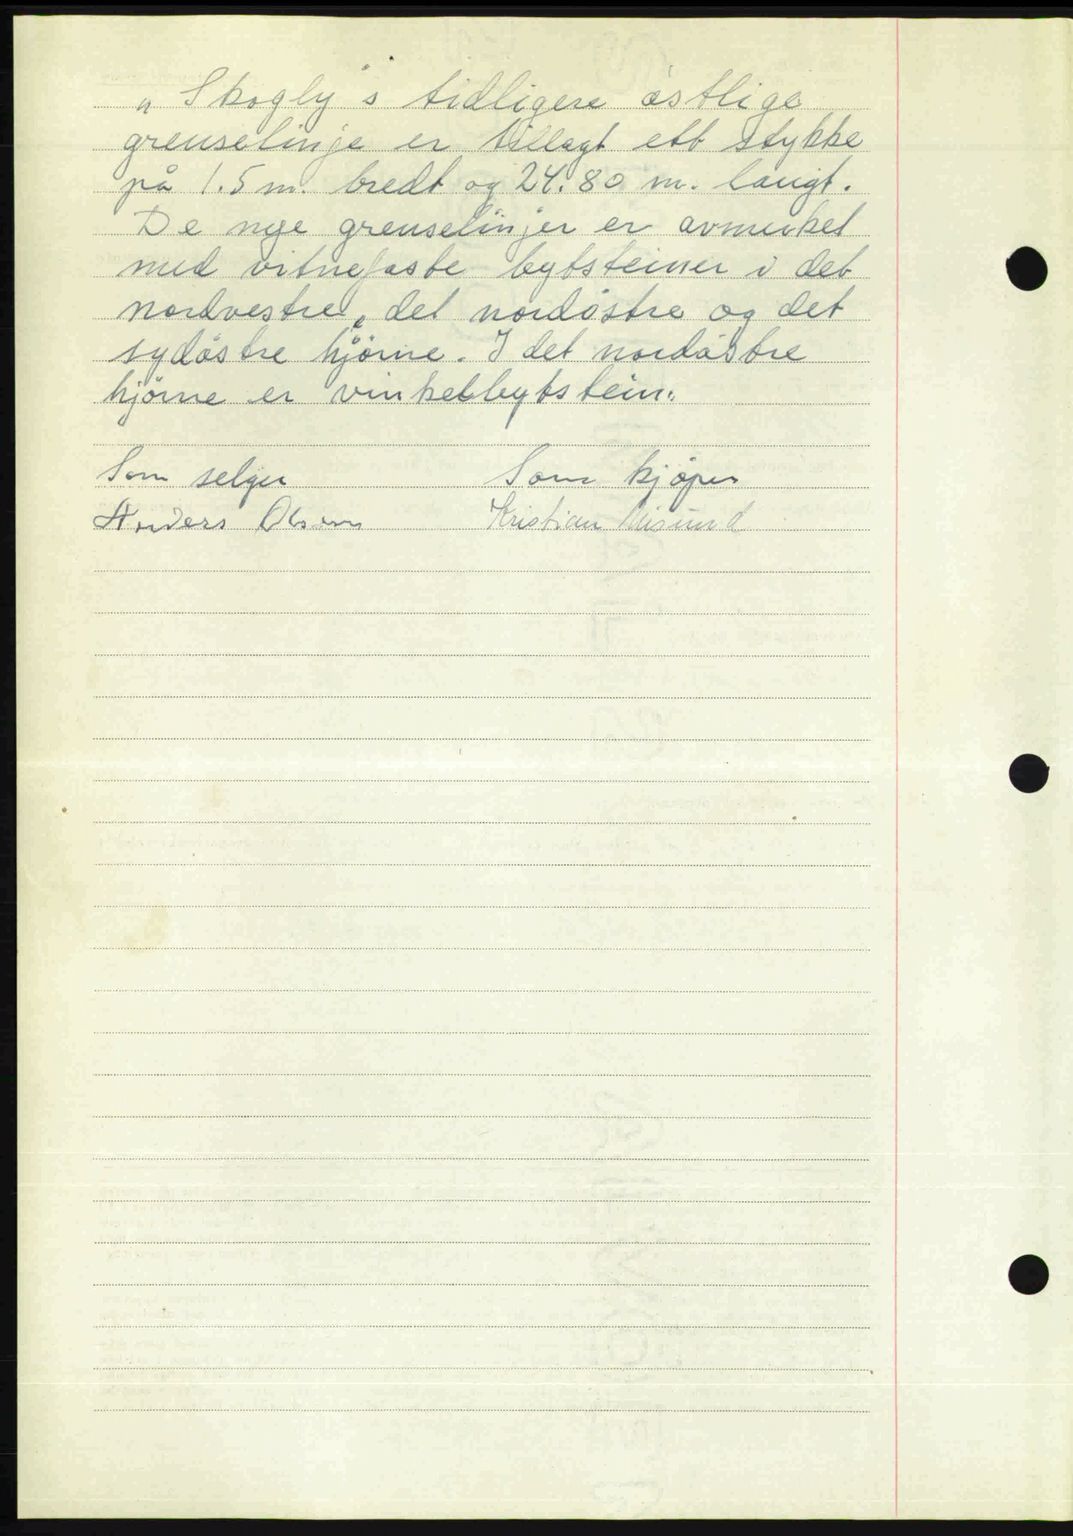 „Skogly"s tidligere östlige
grenselinje er tillagt ett stykke
på 1.5 m. bredt og 24.80 m. langt.
De nye grenselinjer er avmerket
med vitnefaste bytsteiner i det
nordvestre, det nordöstre og det
sydöstre hjörne. I det nordöstre
hjörne er vinkelbytstein.
Som selger Som kjøper
Anders Olsen Kristian Misund